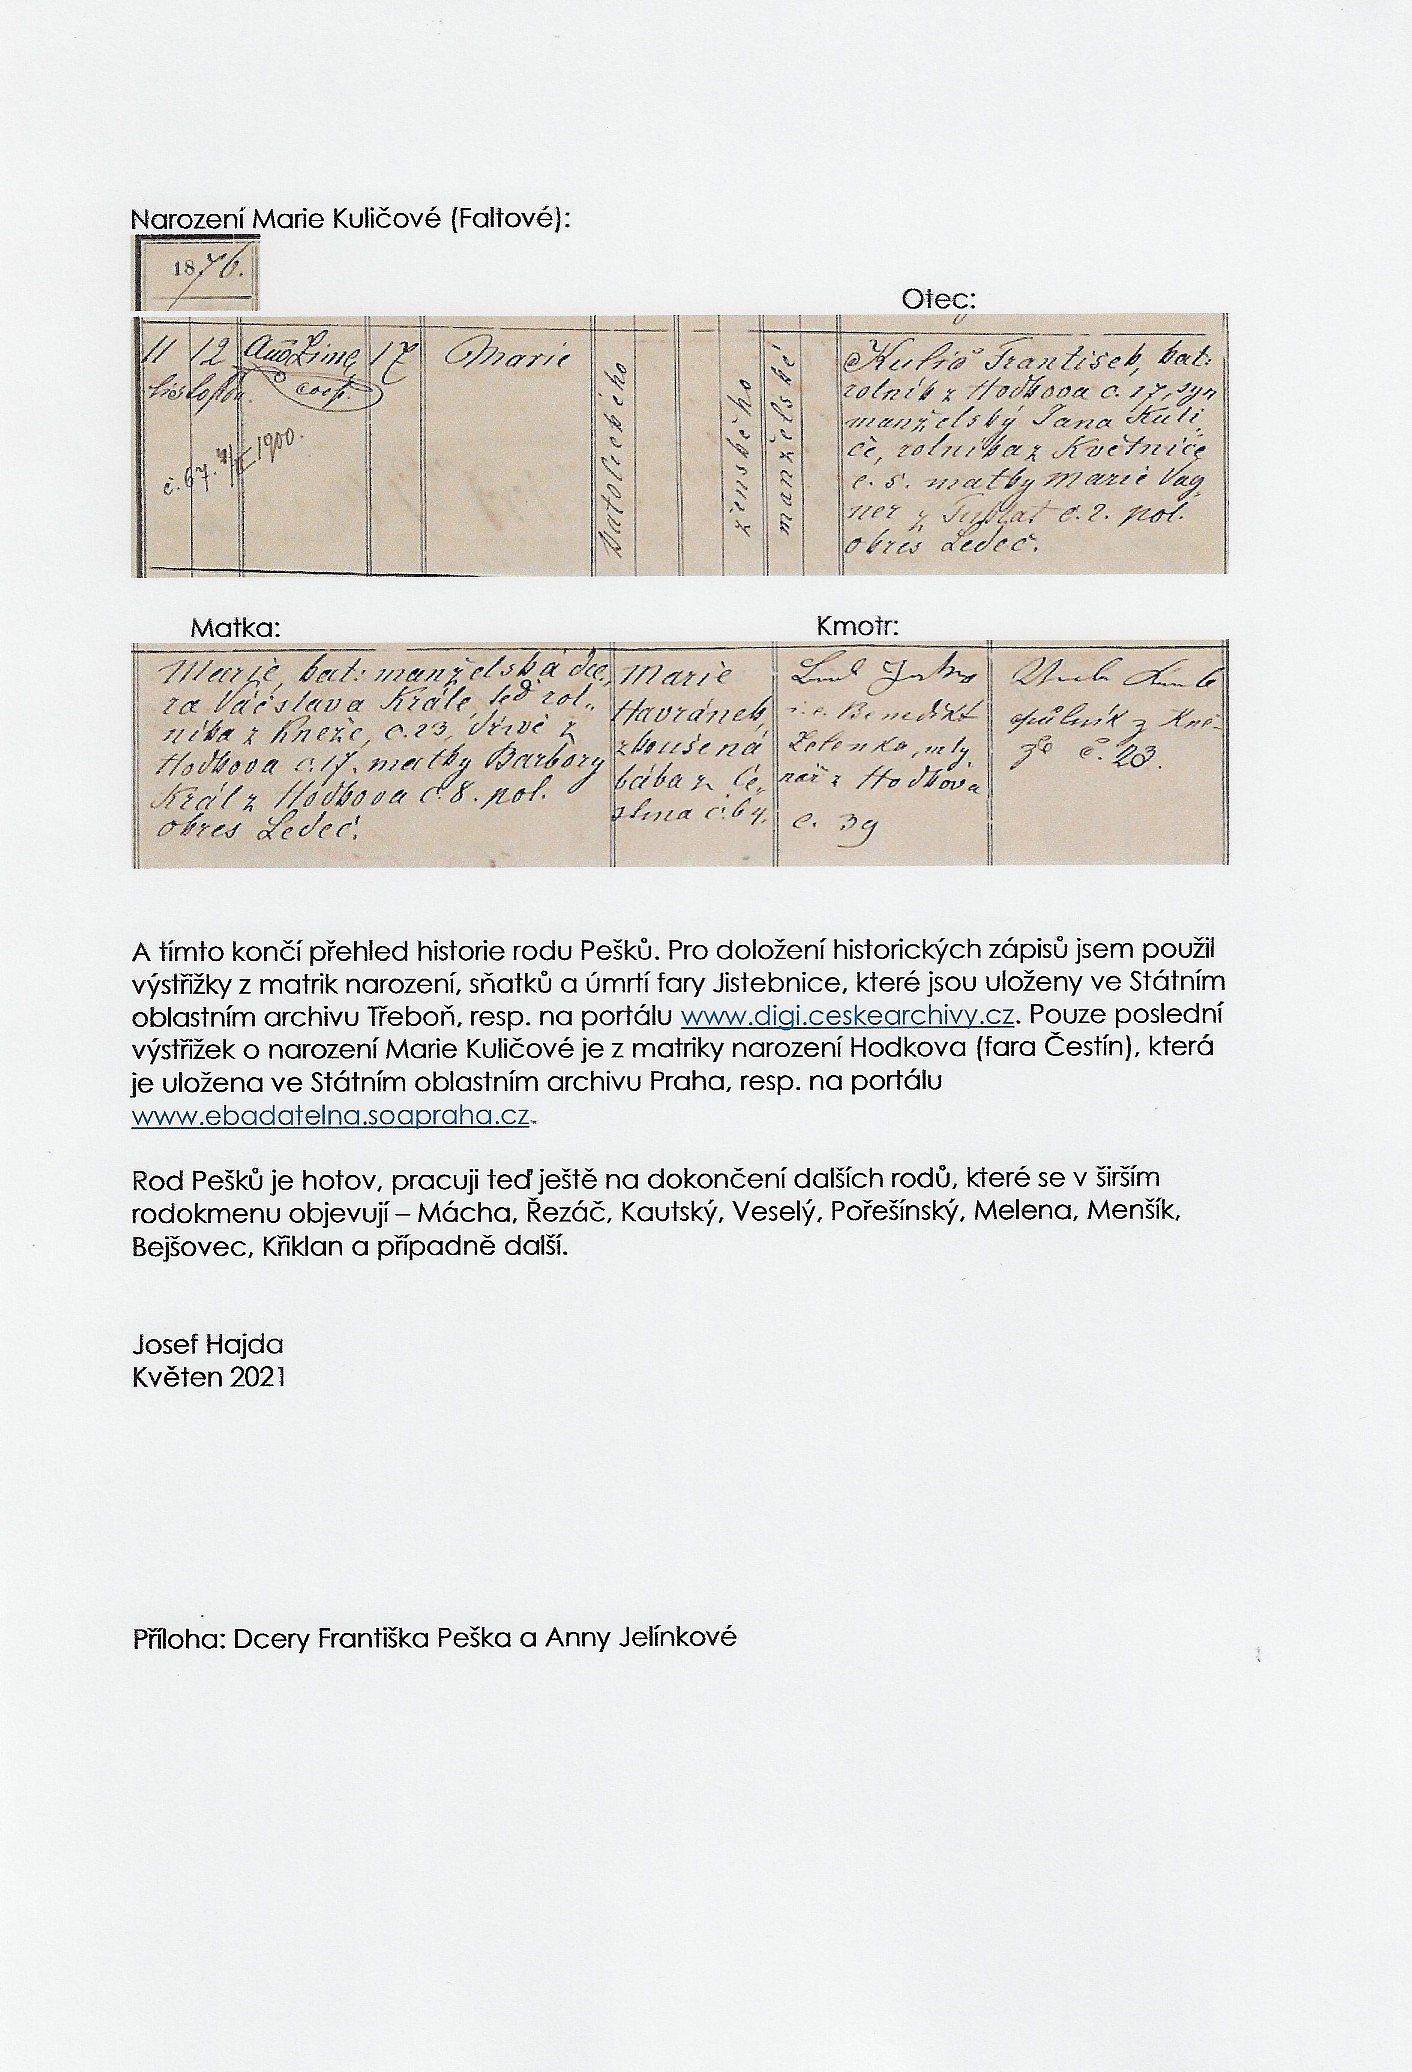 Narození Marie Kuličové (Faltové):
1876.
Otec:
11 12 17 Marie
listopadu
coop.
č. 67. 1900.
katolického
ženského
manželské
Kulič František, kat:
rolník z Hodkova č. 17, syn
manželský Jana Kuli-
če, rolníka z Květnice
č. 5. matky Marie Vag-
ner z č. 2. pol.
okres Ledeč.
Matka:
Kmotr:
Marie, kat: manželská dce-
ra Václava Krále, teď rol-
níka z Kněže, č. 23, dříve z
Hodkova č. 17. matky Barbory
Král z Hodkova č. 8. pol.
okres Ledeč.
Marie
Havránek,
zkoušená
bába z Če-
stína č. 64.
i.e. Benedikt
Zelenka, mly-
nář z Hodkova
č. 39
půlník z Kně-
že č. 23.
A tímto končí přehled historie rodu Pešků. Pro doložení historických zápisů jsem použil
výstřižky z matrik narození, sňatků a úmrtí fary Jistebnice, které jsou uloženy ve Státním
oblastním archivu Třeboň, resp. na portálu www.digi.ceskearchivy.cz. Pouze poslední
výstřižek o narození Marie Kuličové je z matriky narození Hodkova (fara Čestín), která
je uložena ve Státním oblastním archivu Praha, resp. na portálu
www.ebadatelna.soapraha.cz.
Rod Pešků je hotov, pracuji teď ještě na dokončení dalších rodů, které se v širším
rodokmenu objevují – Mácha, Řezáč, Kautský, Veselý, Pořešínský, Melena, Menšík,
Bejšovec, Křiklan a případně další.
Josef Hajda
Květen 2021
Příloha: Dcery Františka Peška a Anny Jelínkové